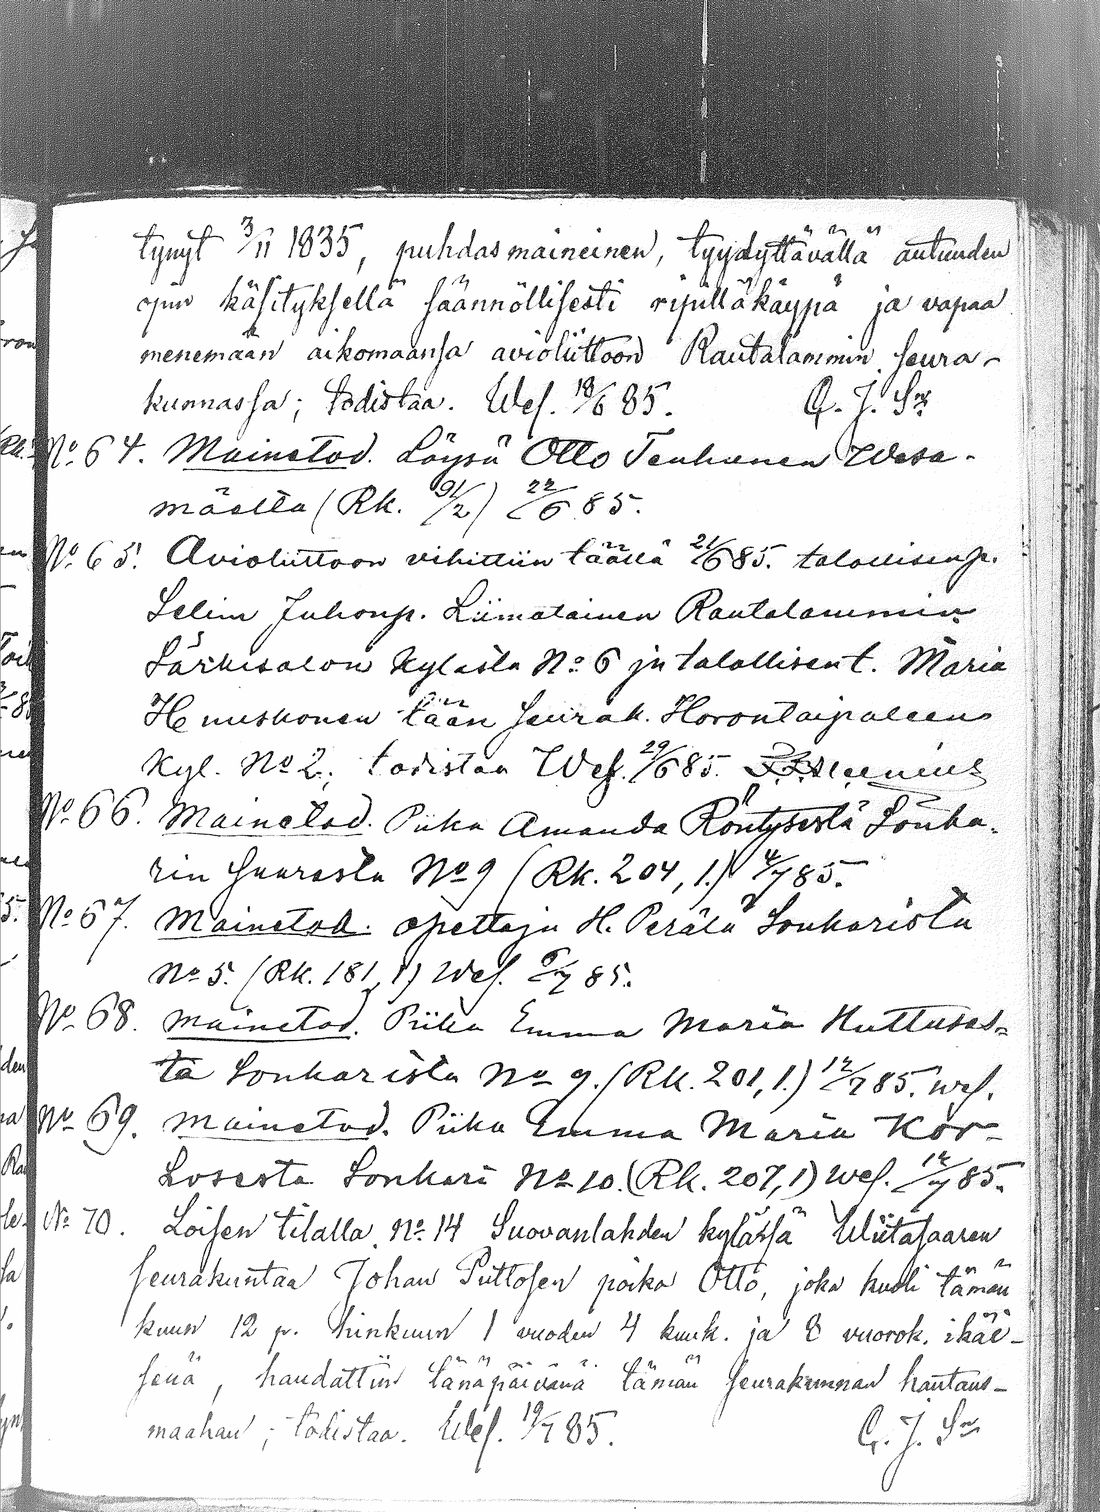 tynyt 3/11 1835, puhdasmaineinen, tyydyttävällä autuuden
opin käsityksellä säännöllisesti ripilläkäypä ja vapaa
menemään aikomaansa avioliittoon Rautalammin seura-
kunnassa; todistaa. Wes. 18/6 85. G. J. Sn
No 64. Mainetod. Löysä Otto Tenhunen Wesa-
mäeltä (Rk. 91/2) 22/6 85.
No 65. Avioliittoon vihittiin täällä 21/6 85. talollisenp.
Selim Juhonp. Liimatainen Rautalammin
Särkisalon kylästä No 6 ja talollisent. Maria
Huuskonen tään seurak. Horontaipaleen
kyl. No 2; todistaa Wes. 29/6 85.
No 66. Mainetod. Piika Amanda Röntysestä Sonka-
rin saaresta No 9 (Rk. 204, 1.) 4/7 85.
No 67. Mainetod. opettaja H. Perälä Sonkarista
No 5. (Rk. 181, 1) Wes. 6/7 85.
No 68. Mainetod. Piika Emma Maria Huttuses-
ta Sonkarista No 9. (Rk. 201, 1.) 12/7 85. Wes.
No 69. Mainetod. Piika Emma Maria Kor-
hosesta Sonkari No 10. (Rk. 207, 1) Wes. 12/7 85.
No 70. Loisen tilalla No 14 Suovanlahden kylässä Wiitasaaren
seurakuntaa Johan Puttosen poika Otto, joka kuoli tämän
kuun 12 p. hinkuun 1 vuoden 4 kuuk. ja 8 vuorok. ikäi-
senä, haudattiin tänäpäivänä tämän seurakunnan hautaus-
maahan; todistaa. Wes. 19/7 85. G. J. Sn